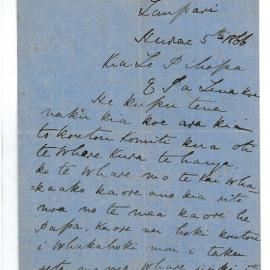 Taupari
Hurae 5th 1866
Kia Te Pihopa
E Pa Tena koe
He kupu tena
naku kia koe ara kia
to koutou Komiti kua oti
te Whare Kura te hanga.
ko te Whare mo te kai wha
kaako kaore ano kia rite
noa no te mea kaore he
Papa. Kaore nei hoki koutou
i whakahoki mai i taku